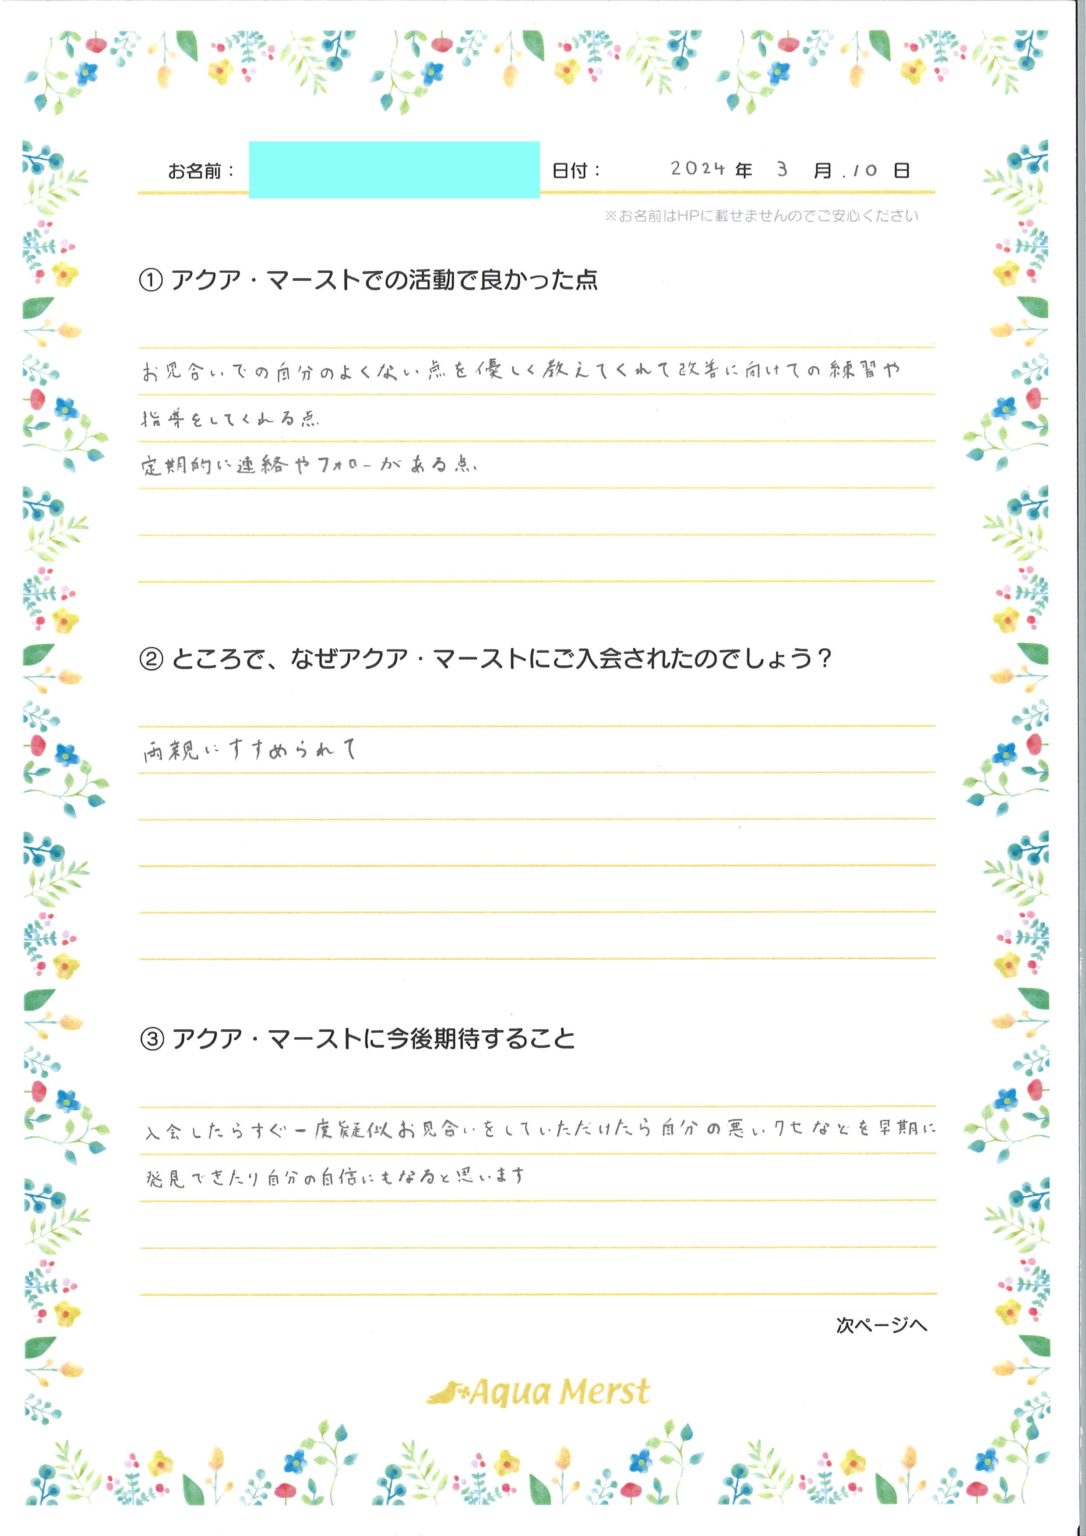 お名前： 日付： 2024 年 3 月 .10 日
※お名前はHPに載せませんのでご安心ください
① アクア・マーストでの活動で良かった点
お見合いでの自分のよくない点を優しく教えてくれて改善に向けての練習や
指導をしてくれる点
定期的に連絡やフォローがある点、
② ところで、なぜアクア・マーストにご入会されたのでしょう？
両親にすすめられて
③ アクア・マーストに今後期待すること
入会したらすぐ一度疑似お見合いをしていただけたら自分の悪いクセなどを早期に
発見できたり自分の自信にもなると思います
次ページへ
Aqua Merst